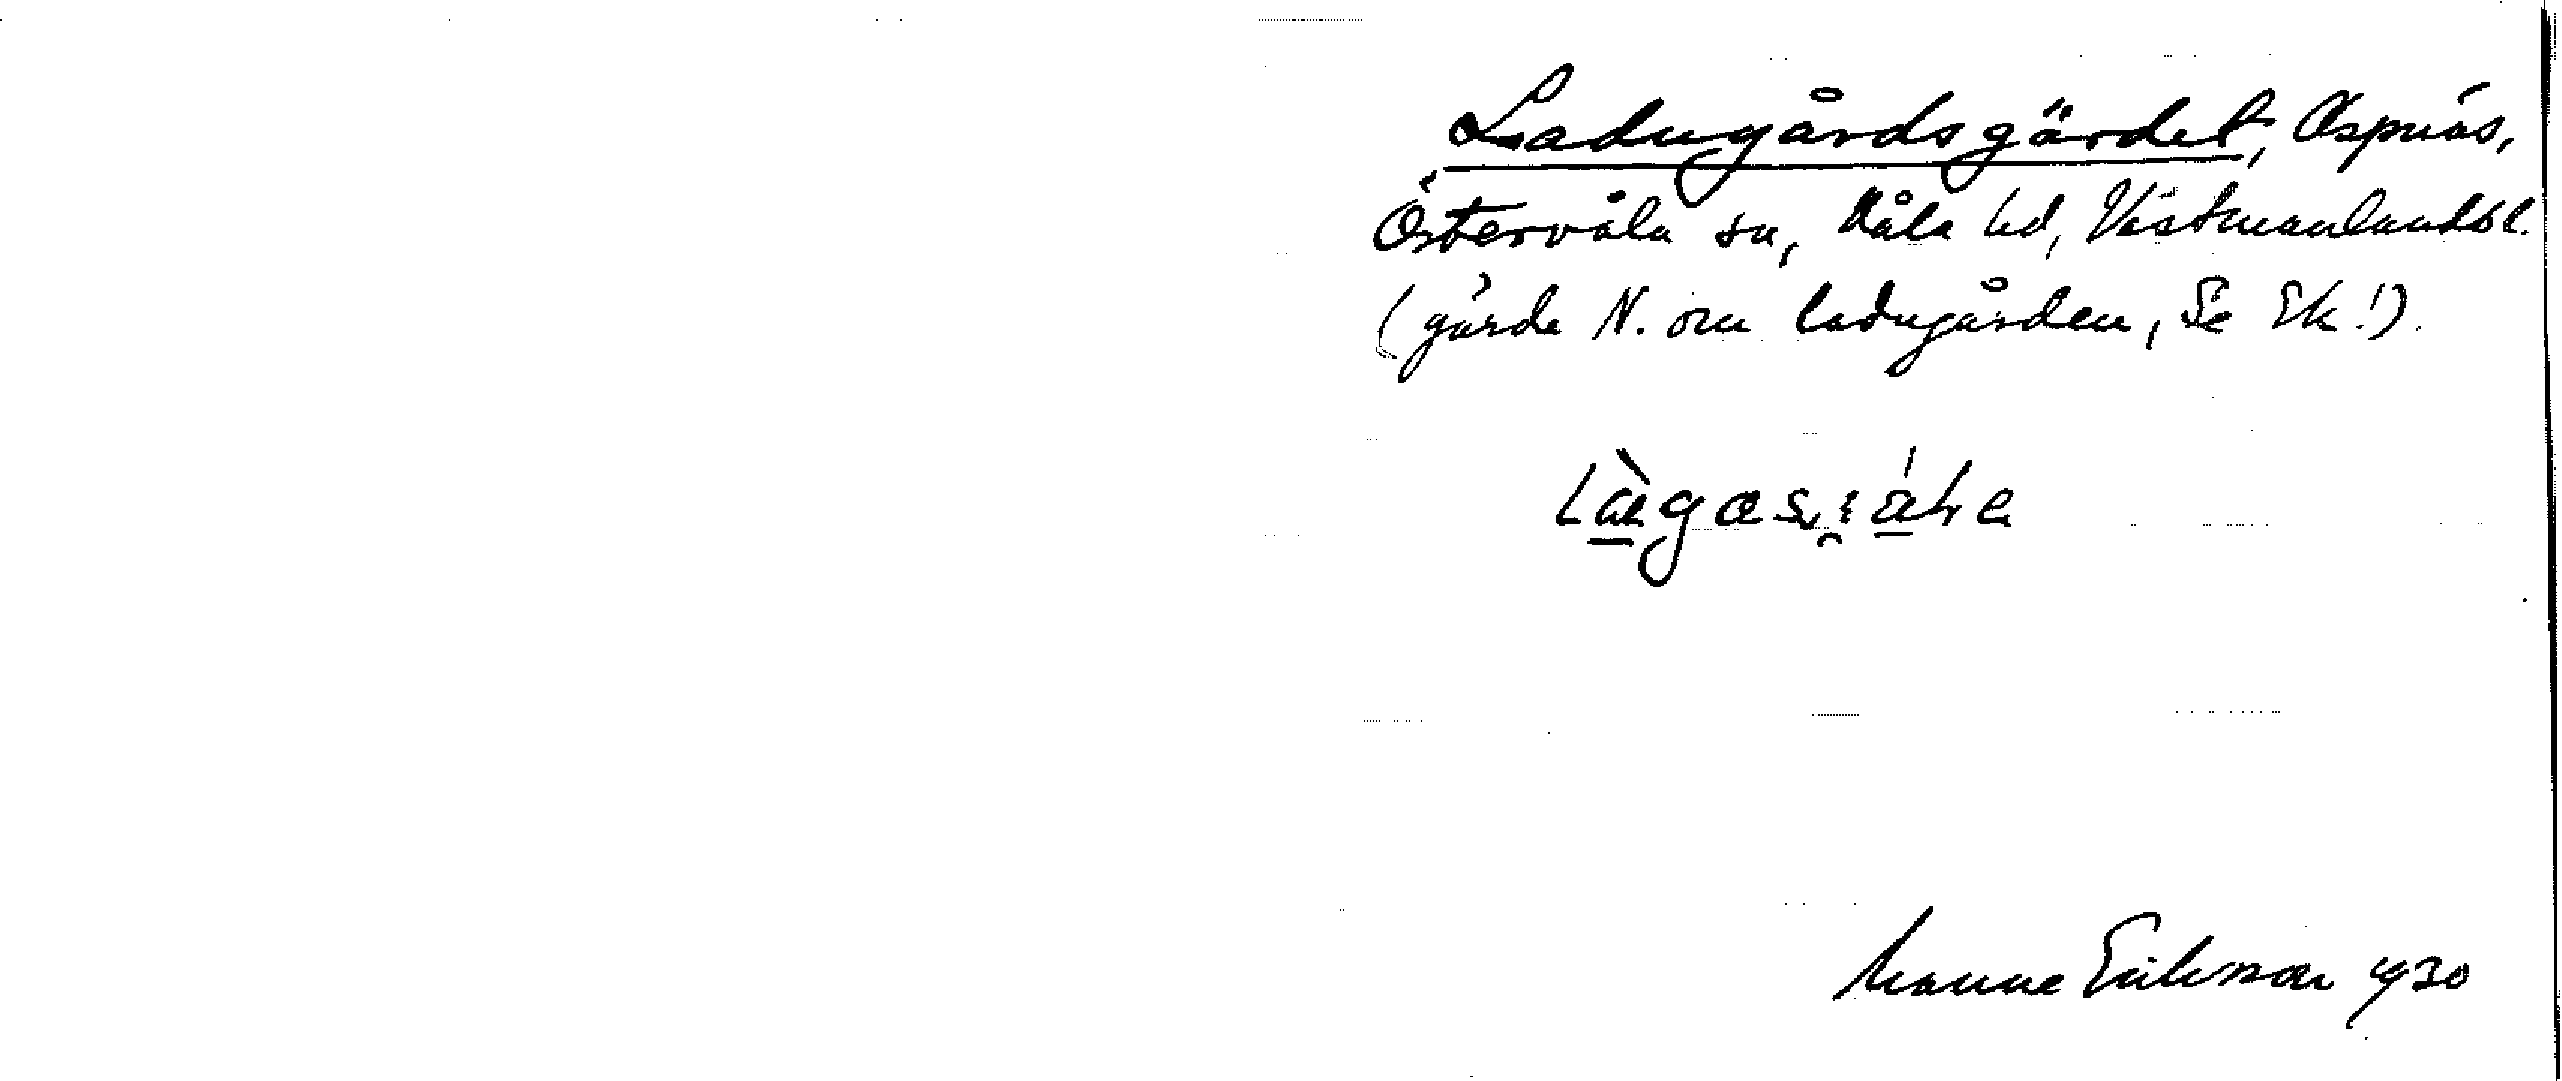 Ladugårdsgärdet, Aspnäs,
Östervåla sn, Våla hd, Västmanlands l.
(gärde N. om ladugården, Se Ek!).
Manne Eriksson 1930